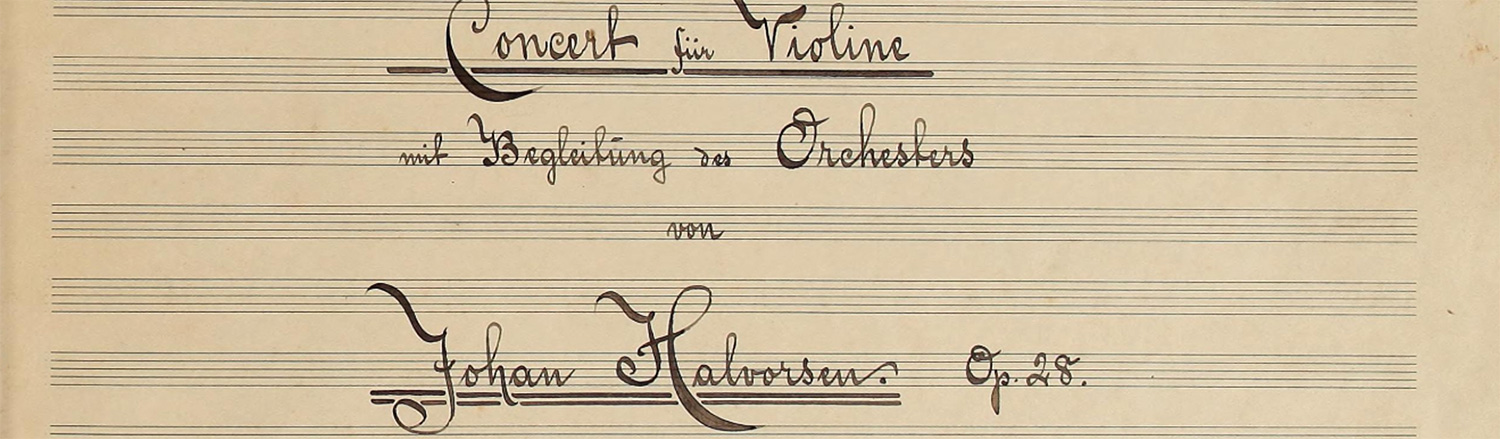 Concert für Violine
mit Begleitung des Orchesters
von
Johan Halvorsen. Op. 28.